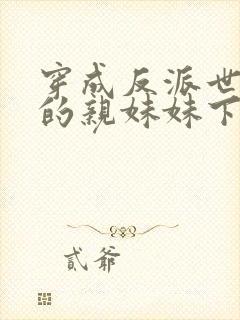 穿成反派世
的親妹妹下
貳爺